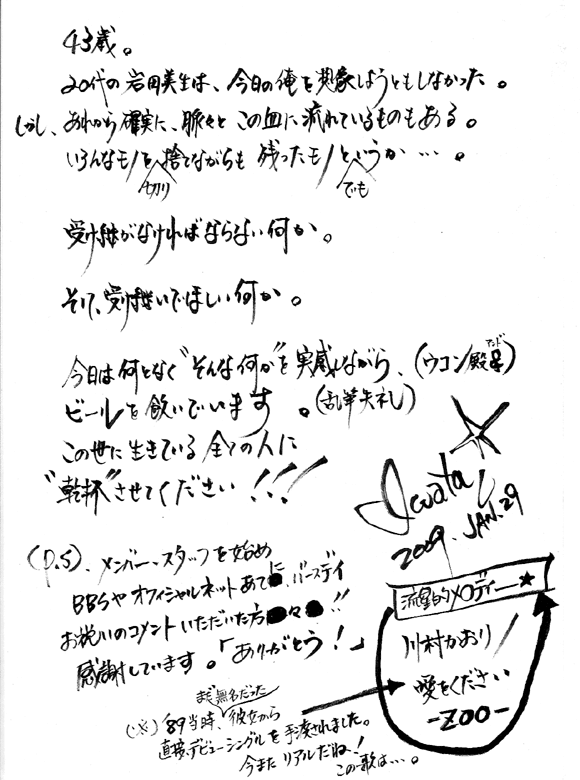 43歳。
20代の岩田美生は、今日の俺を想像しようともしなかった。
しかし、あれから確実に、脈々とこの血に流れているものもある。
いろんなモノを捨てながらも 残ったモノというか…。
切り
でも
受け継がなければならない何か。
そして、受け継いでほしい何か。
今日は何となく“そんな何か”を実感しながら、(ウコン殿
アンド
ビールを飲いでいます。(乱筆失礼)
この世に生きている全ての人に
“乾杯”させてください!!!
Iwata
2009. JAN. 29
(P.S)、メンバー・スタッフを始め
BBSやオフィシャルネットあてに、バースデイ
お祝いのコメントいただいた方々!!
感謝しています。「ありがとう!」
流星的メロディー★
川村かおり
愛をください
-ZOO-
まだ無名だった
(※)89当時、彼女から
直接デビューシングルを手渡されました。
今またリアルだね!
この歌は…。